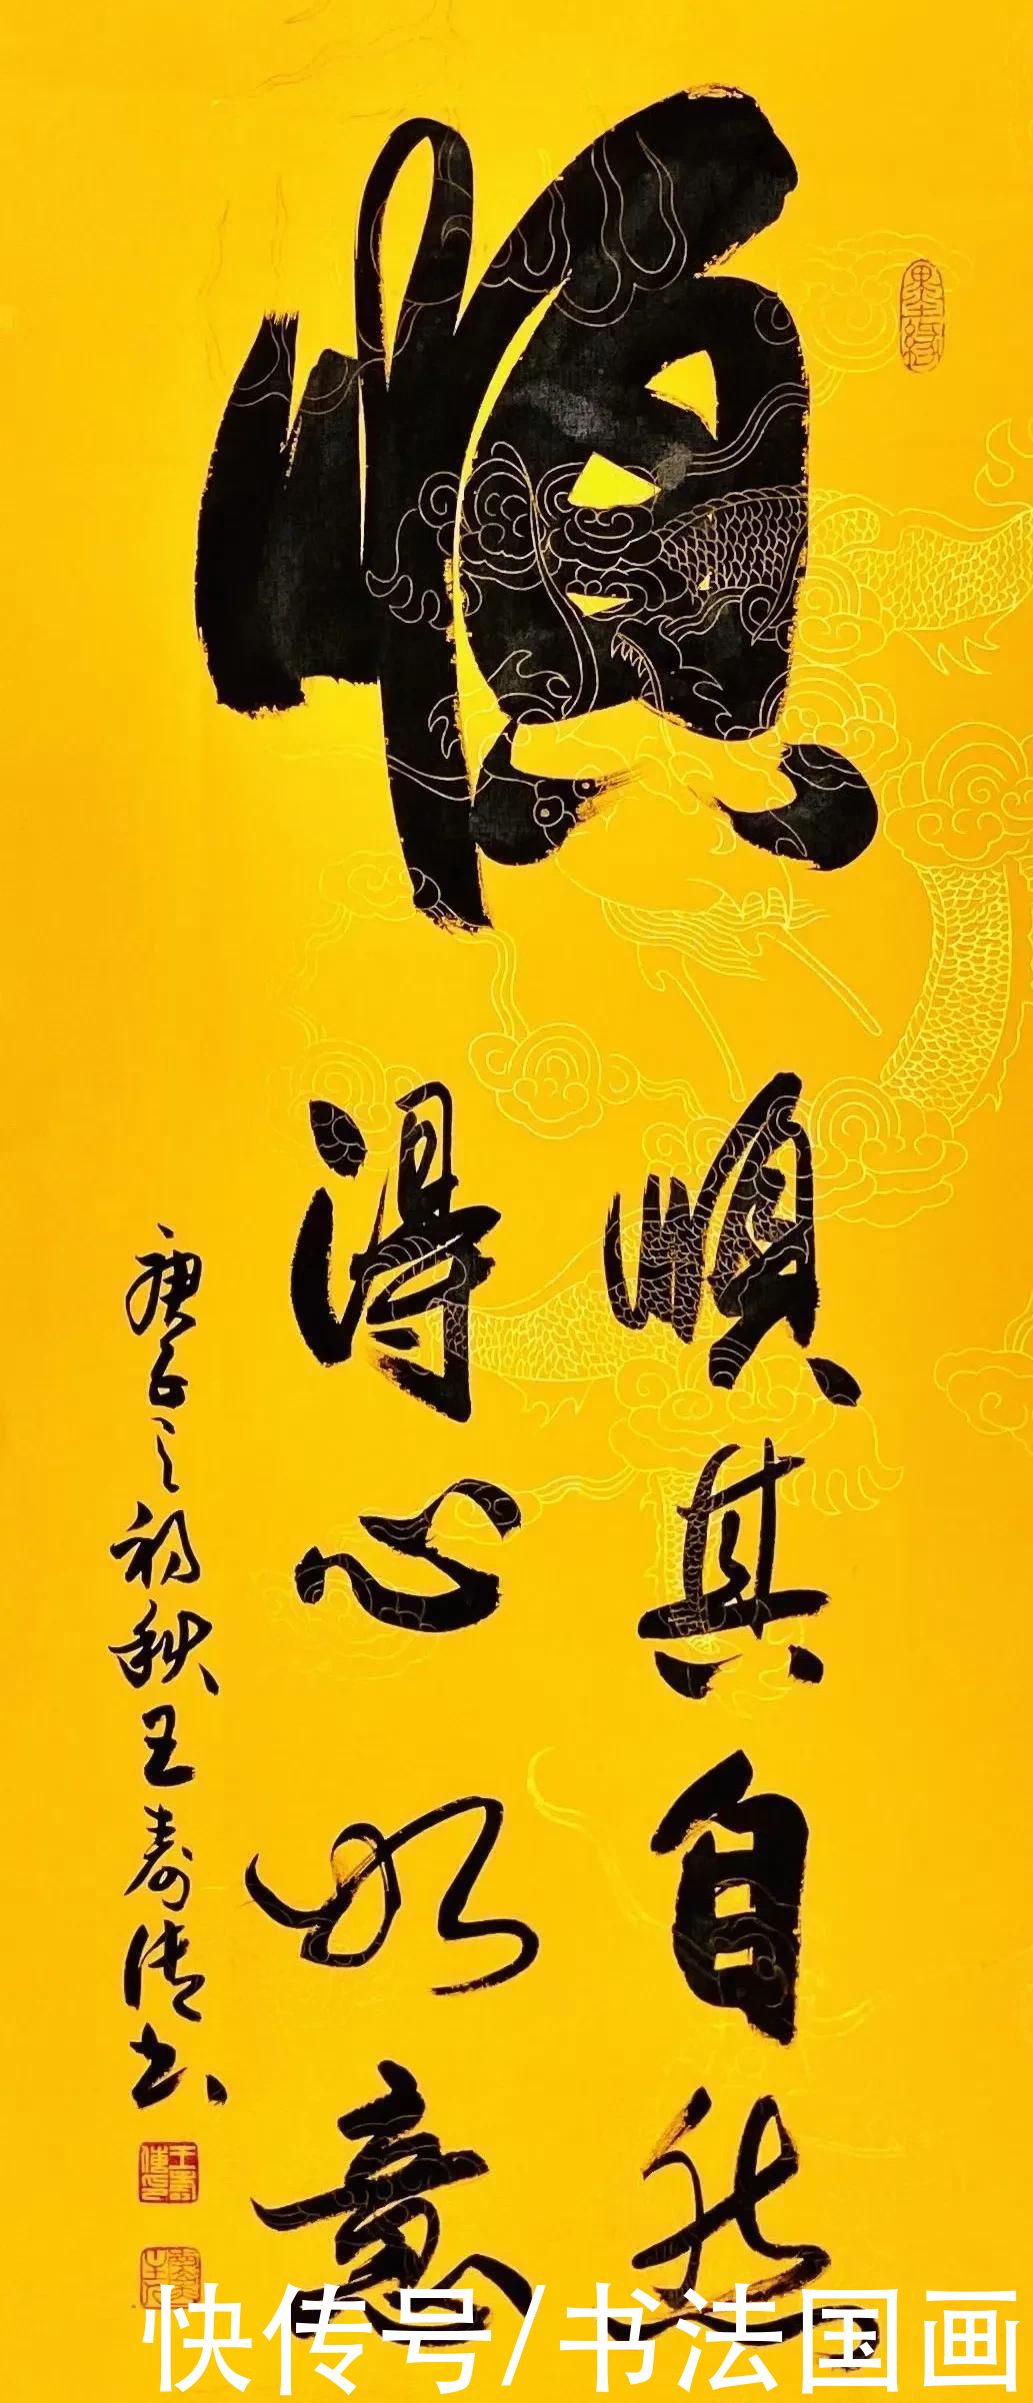 順
墨缘
順其自然
得心如意
庚子之初秋王寿书
快传号/书法国画